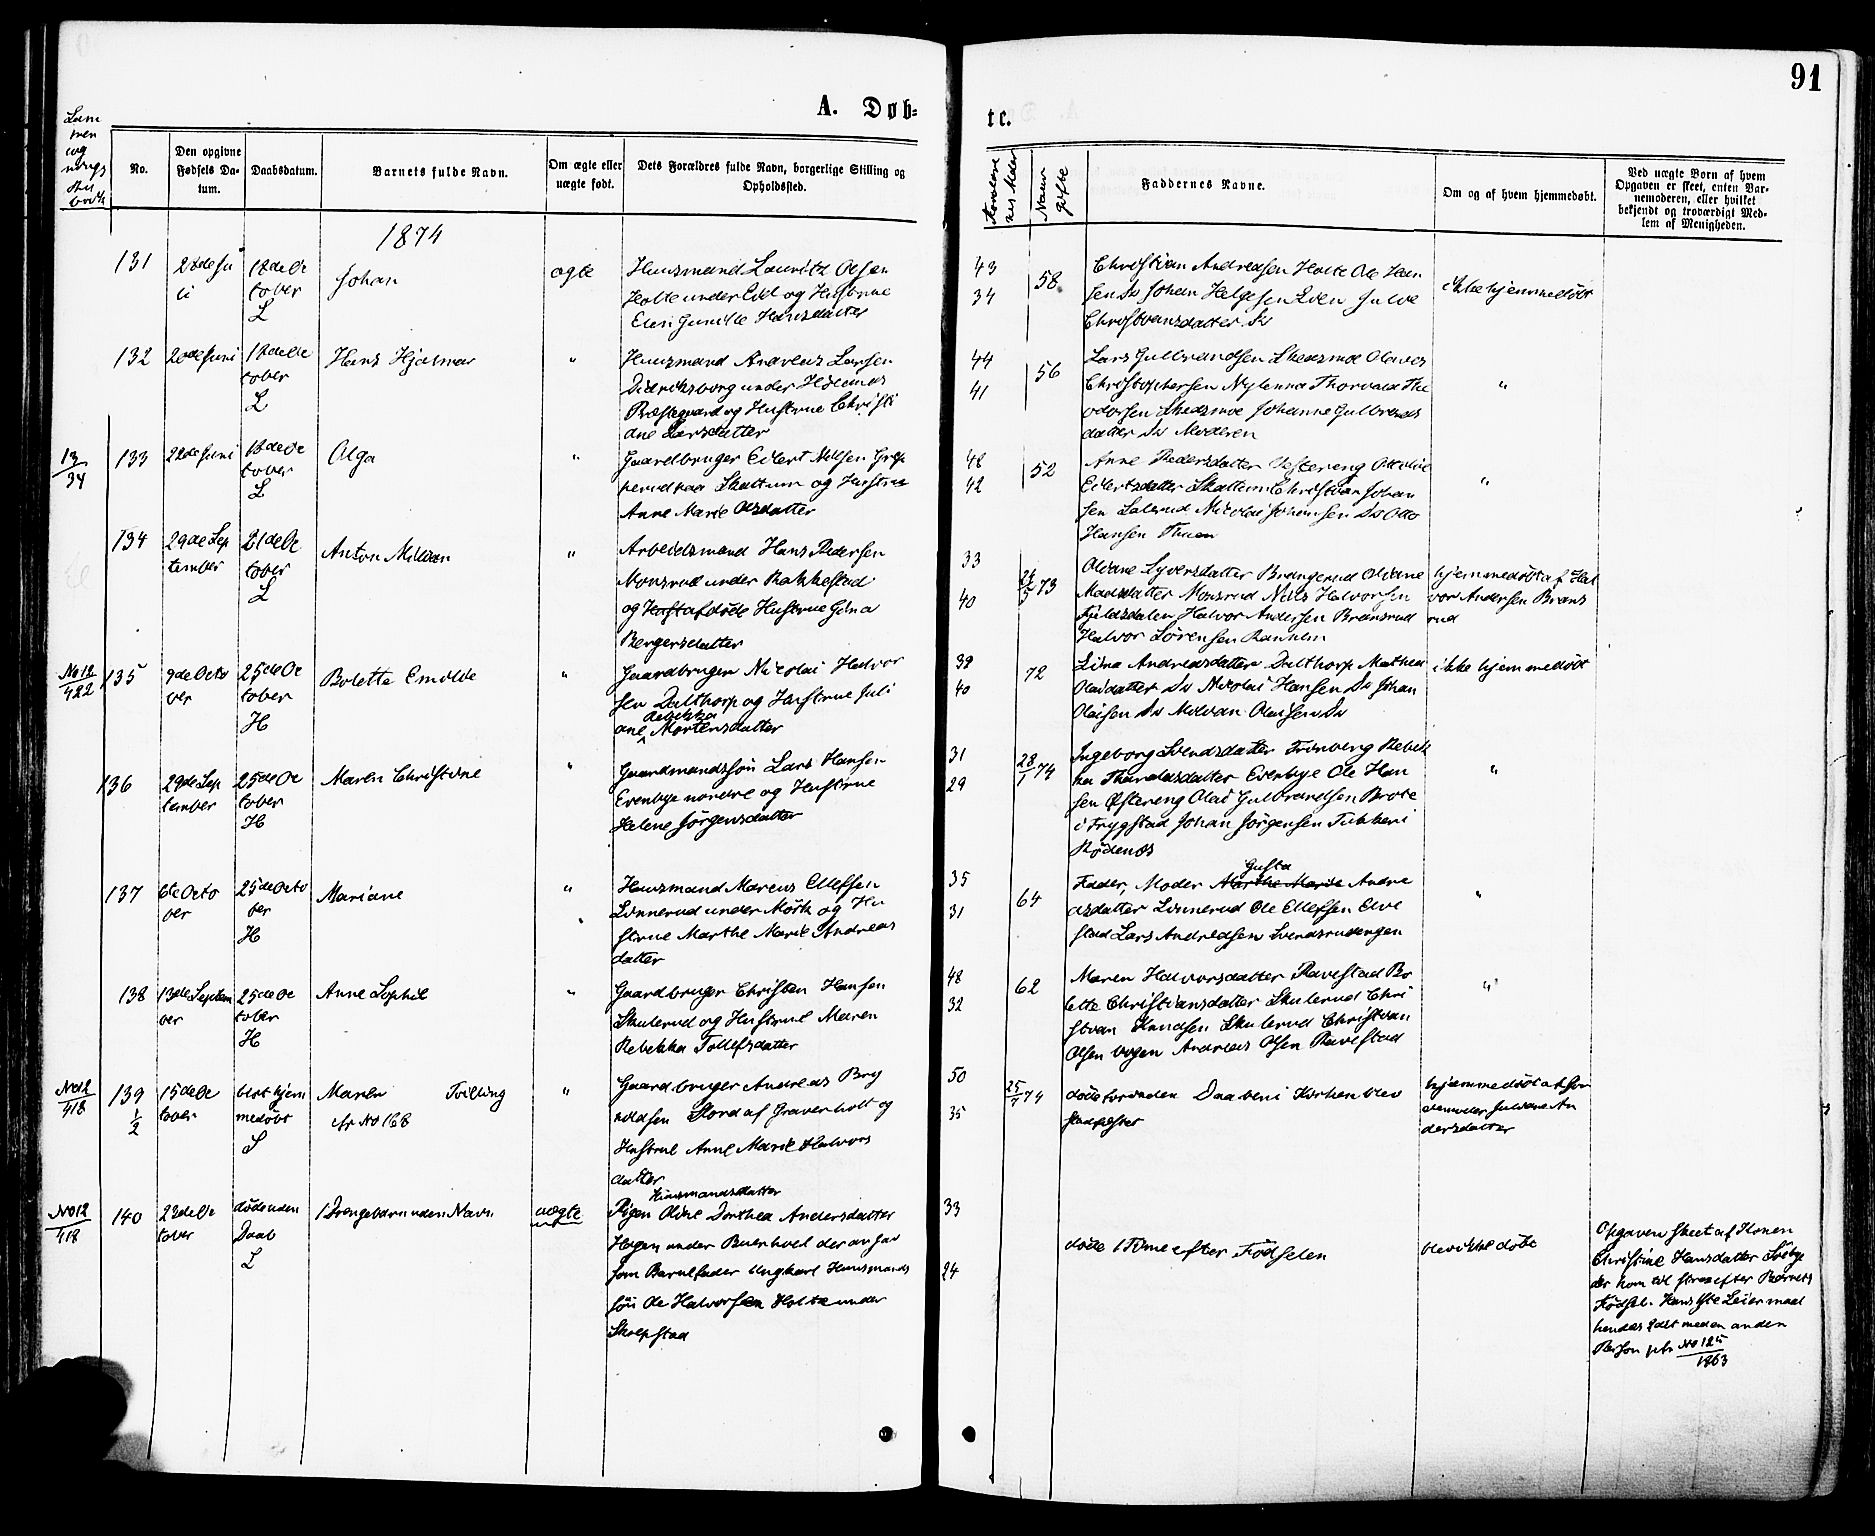 91
A. Døb-
te.
No.
Den opgivne
Fødsels Da-
tum.
Daabsdatum.
Barnets fulde Navn.
Om ægte eller
uægte født.
Dets Forældres fulde Navn, borgerlige Stilling og
Opholdssted.
Naar
gifte
Faddernes Navne.
Om og af hvem hjemmedøbt.
Ved uægte Børn af hvem
Opgaven er skeet, enten Bar-
nemoderen, eller hvilket
bekjendt og troværdigt Med-
lem af Menigheden.
1874
131
18 de Oc
tober
L
Johan
ægte
Huusmand Lauritz Olsen
Holte under Eid og Hustrue
Eleri Gunille Hansdatter
43
34
58
Christian Andreasen Holte Ole Han
sen Ds Johan Helgesen Eden Julie
Christiansdatter Ds
ikke hjemmedøbt
132
20 de Juni
18 de Oc
tober
L
Hans Hjalmar
"
Huusmand Andreas Larsen
Didriksborg under Hølands
Præstegaard og Hustrue Christi
ane Larsdatter
44
41
56
Lars Gulbrandsen Skedsmoe Olaves
Christophersen Nylenna Thorvald The
odorsen Skedsmoe Johanne Gulbrands
datter Ds Moderen
"
13
34
133
22 de Juni
18 de Oc
tober
L
Olga
"
Gaardbruger Eilert Nilsen Grep
perud paa Skattum og Hustrue
Anne Marie Olsdatter
48
42
52
Anne Pedersdatter Østereng Ottilie
Eilertsdatter Skattum Christian Johan
sen Lalerud Nicolai Johansen Ds Otto
Hansen Thuen
"
134
29 de Sep
tember
21 de Oc
tober
L
Anton Milian
"
Arbeidsmand Hans Pedersen
Monsrud under Rakkestad
og afdøde Hustrue Gina
Bergersdatter
33
40
73
Oliane Syversdatter Brangerud Oliane
Madsdatter Monsrud Nils Halvorsen
Fjeldsdalen Halvor Andersen Bransrud
Halvor Sørensen Ranheim
hjemmedøbt af Hal
vor Andersen Brans
rud
No 12
422
135
9 de Octo
ber
25 de Oc
tober
H
Bolette Emilie
"
Gaardbruger Nicolai Halvor
sen Dalthorp og Hustrue Juli
ane Rebekka Mortensdatter
39
40
72
Lina Andreasdatter Dalthorp Mathea
Olaisdatter Ds Nicolai Hansen Ds Johan
Olaisen Ds Milvan Olausen Ds
ikke hjemmedøbt
136
29 de Sep
tember
25 de Oc
tober
H
Maren Christine
"
Gaardmandssøn Lars Hansen
Evenbye nordre og Hustrue
Helene Jørgensdatter
31
29
28/1 74
Ingeborg Svendsdatter Tronberg Rebek
ka Thorvaldsdatter Evenbye Ole Han
sen Østereng Olai Gulbrandsen Brote
i Trygstad Johan Jørgensen Tukkeri
Rødenæs
"
137
6 de Octo
ber
25 de Octo
ber
H
Mariane
"
Huusmand Marcus Ellefsen
Linnerud under Mørk og Hu
strue Marthe Marie Andreas
datter
35
31
64
Fader, Moder Marthe Marie Gusta Andre
asdatter Linnerud Ole Ellefsen Elve
stad Lars Andreasen Svendsrudengen
"
138
13 de Septem
ber
25 de Oc
tober
H
Anne Sophie
"
Gaardbruger Christen Hansen
Skulerud og Hustrue Maren
Rebekka Tollefsdatter
48
32
62
Maren Halvorsdatter Ravestad Bo
lette Christiansdatter Skulerud Chri
stian Knudsen Skulerud Christian
Olsen Andreas Olsen Ravestad
"
No 12
418
139
1/2
15 de Oc
tober
blot hjem
medøbt
S
Maren Tvilling
cfr No 168
"
Gaardbruger Andreas Bry
nildsen Stord af Gravenholt og
Hustrue Anne Marie Halvors
datter
50
35
25/7 74
døde forinden Daaben i Kirken blev
stadfæstet
hjemmedøbt af Jor
demoder Juliane An
dersdatter
No 12
418
140
23 de Oc
tober
døde uden
Daab
L
1 Drengebarn uden Navn
uægte
Huusmandsdatter
Pigen Oline Dorthea Andersdatter
Hagen under Buerhoel der angav
som Barnefader Ungkarl Huusmands
søn Ole Halvorsen Holte under
Skolpstad
33
24
døde 1 Time efter Fødselen
blev ikke døbt
Opgaven skeet af Konen
Christine Hansdatter Sørbye
der kom til strax efter Barnets
Fødsel. Hans 1ste Leiermaal
hendes 2det med en anden
Person cfr No 12
1863